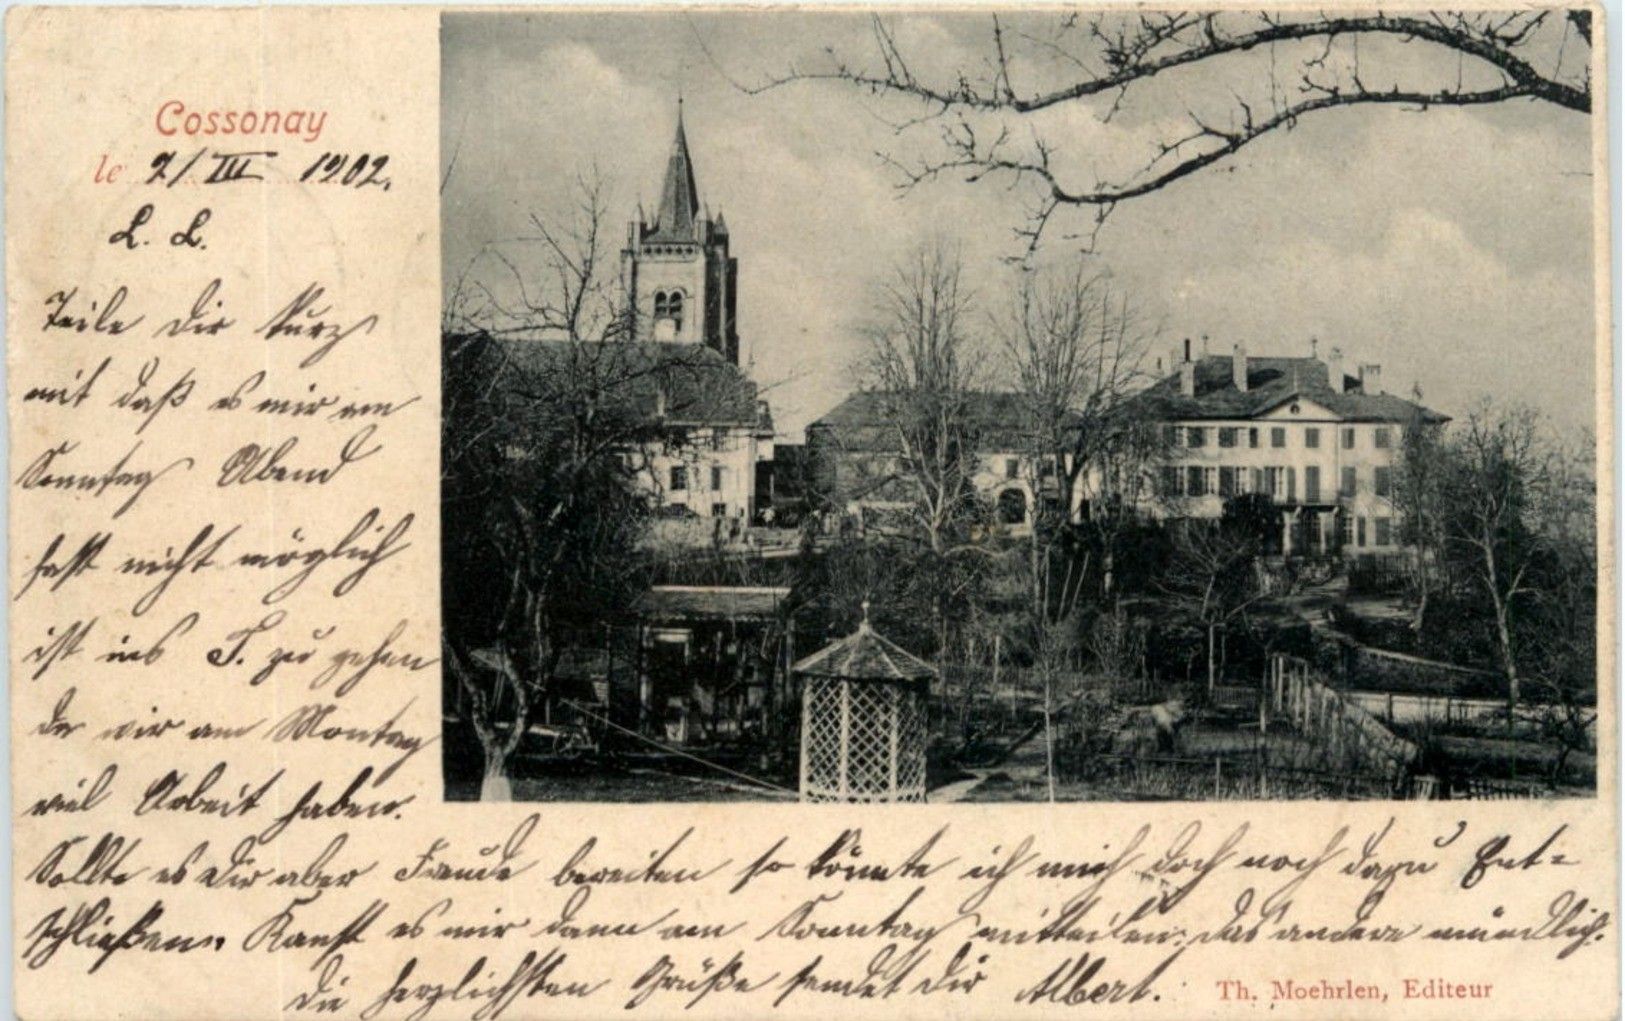 Cossonay
le 7/III 1902.
L. L.
Teile Dir kurz
mit daß es mir am
Sonntag Abend
fast nicht möglich
ist ins T. zu gehen
da wir am Montag
viel Arbeit haben.
Sollte es Dir aber Freude bereiten so könnte ich mich doch noch dazu Ent-
schließen. Kanst es mir dann am Sonntag mitteilen. das andere mündlich.
Die herzlichsten Grüße sendet Dir Albert.
Th. Moehrlen, Editeur